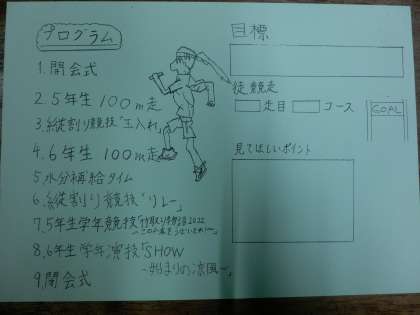 プログラム
1.開会式
2.5年生100m走
3.縦割り競技「玉入れ」
4.6年生100m走
5.水分補給タイム
6.縦割り競技「リレー」
7.5年生学年競技「竹取り物語2022
8.6年生学年演技「SHOW
~始まりの涼風~」
9.閉会式
目標
徒競走
走目 コース
GOAL
見てほしいポイント